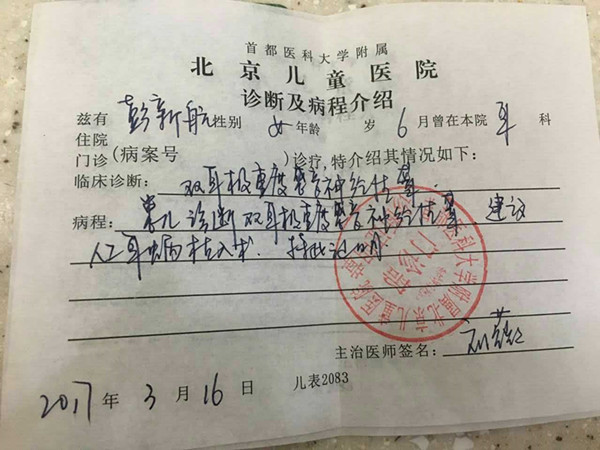 首都医科大学附属
北京儿童医院
诊断及病程介绍
兹有 彭新航 性别 女 年龄 岁 6 月曾在本院 耳 科
住院
门诊(病案号 )诊疗,特介绍其情况如下:
临床诊断: 双耳极重度感音神经性聋
病程: 患儿诊断双耳极重度感音神经性聋 建议
人工耳蜗植入术. 特此证明
主治医师签名:
2017 年 3 月 16 日 儿表2083